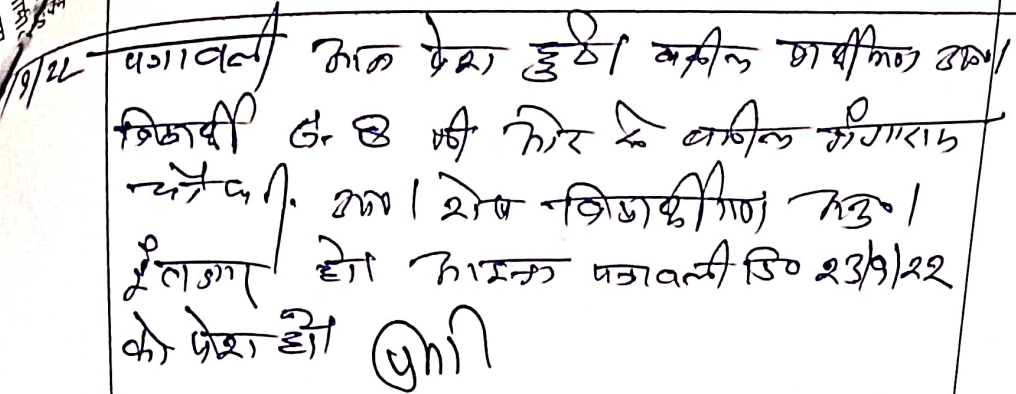 9/22 पत्रावली आज पेश हुई। वकील प्रार्थीगण उप०।
विप्रार्थी सं. 8 की ओर से वकील गंगाराम
चौधरी. उप०। शेष विप्रार्थीगण अनु०।
इंतजार हो। आइन्दा पत्रावली दि० 23/9/22
को पेश हो।